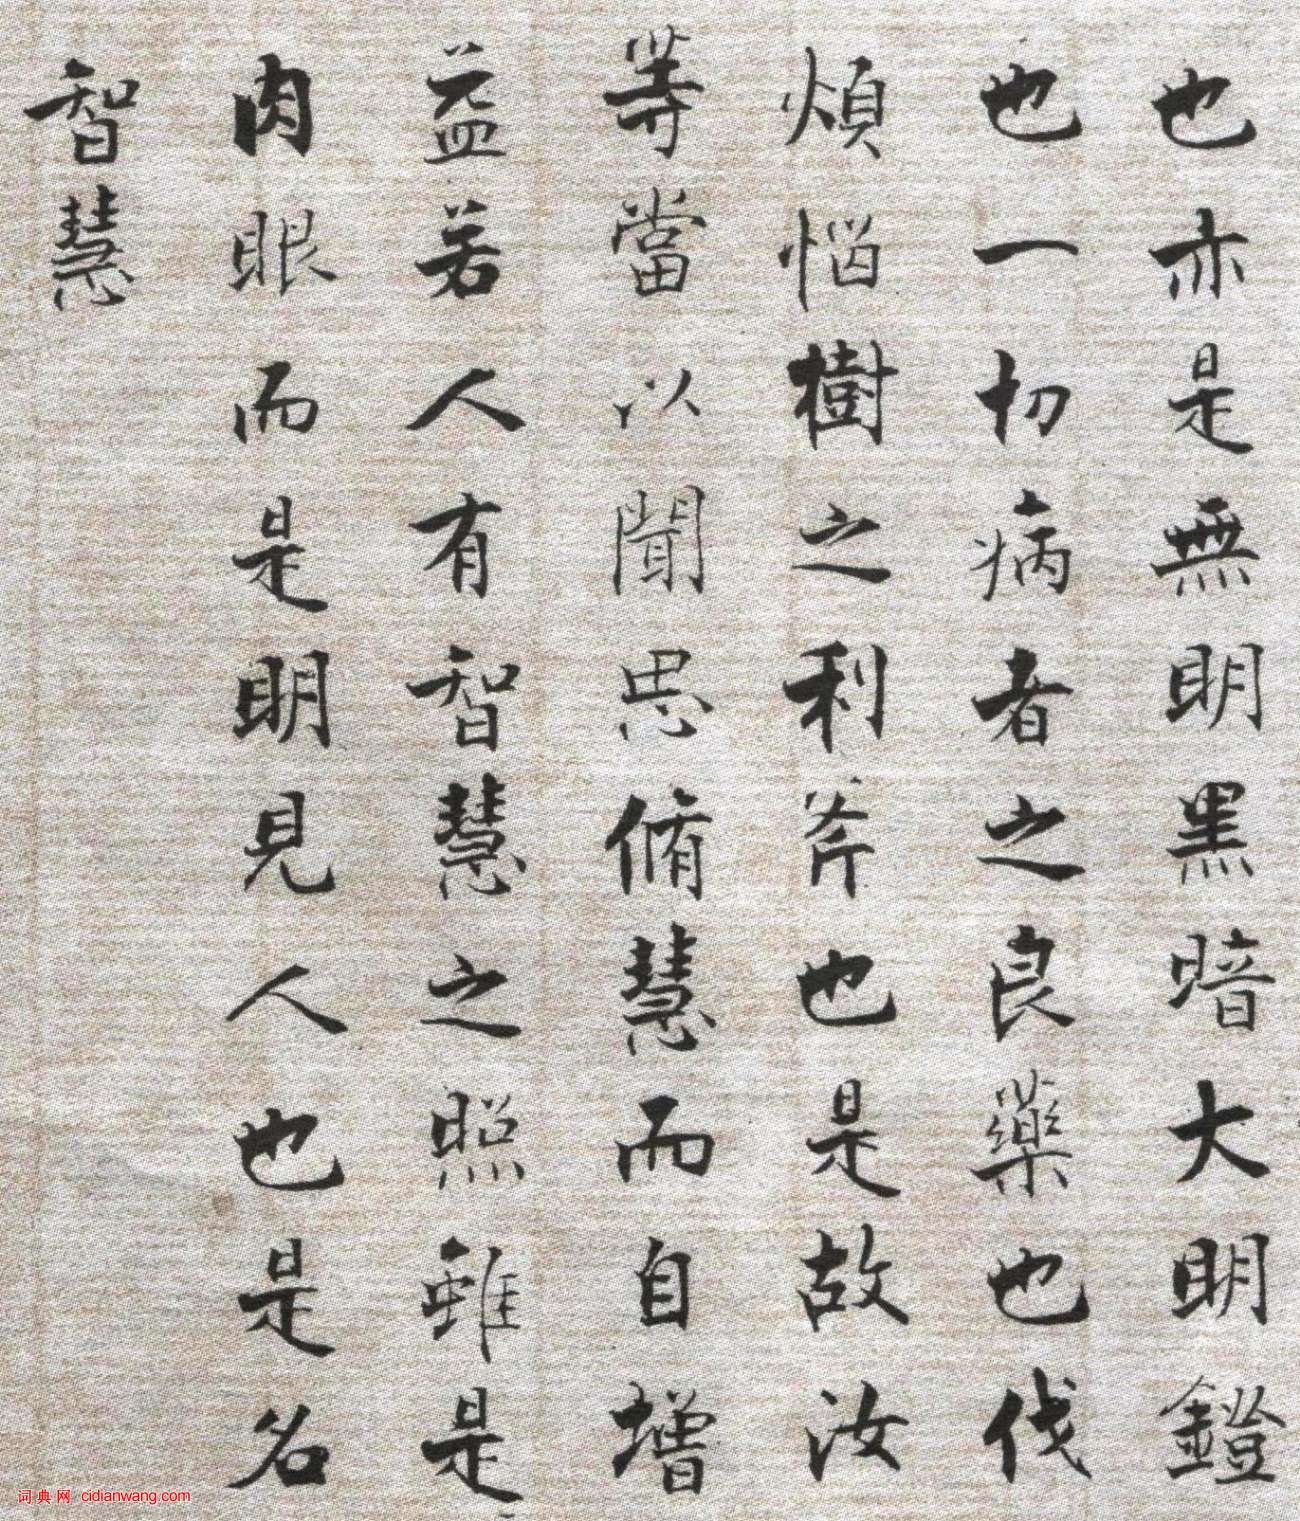 也亦是無明黑暗大明鐙
也一切病者之良藥也伐
煩惱樹之利斧也是故汝
等當以聞思脩慧而自增
益若人有智慧之照雖是
肉眼而是明見人也是名
智慧
词典网 cidianwang.com